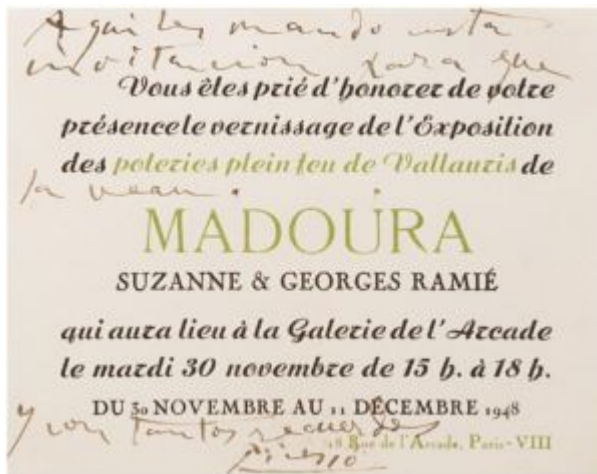 Aqui les mando esta
invitacion para que
Vous êtes prié d'honorer de votre
présence le vernissage de l'Exposition
des poteries plein feu de Vallauris de
la vean.
MADOURA
SUZANNE & GEORGES RAMIÉ
qui aura lieu à la Galerie de l'Arcade
le mardi 30 novembre de 15 h. à 18 h.
DU 30 NOVEMBRE AU 11 DÉCEMBRE 1948
Y con tantos recuerdos
18 Rue de l'Arcade, Paris-VIII
Picasso